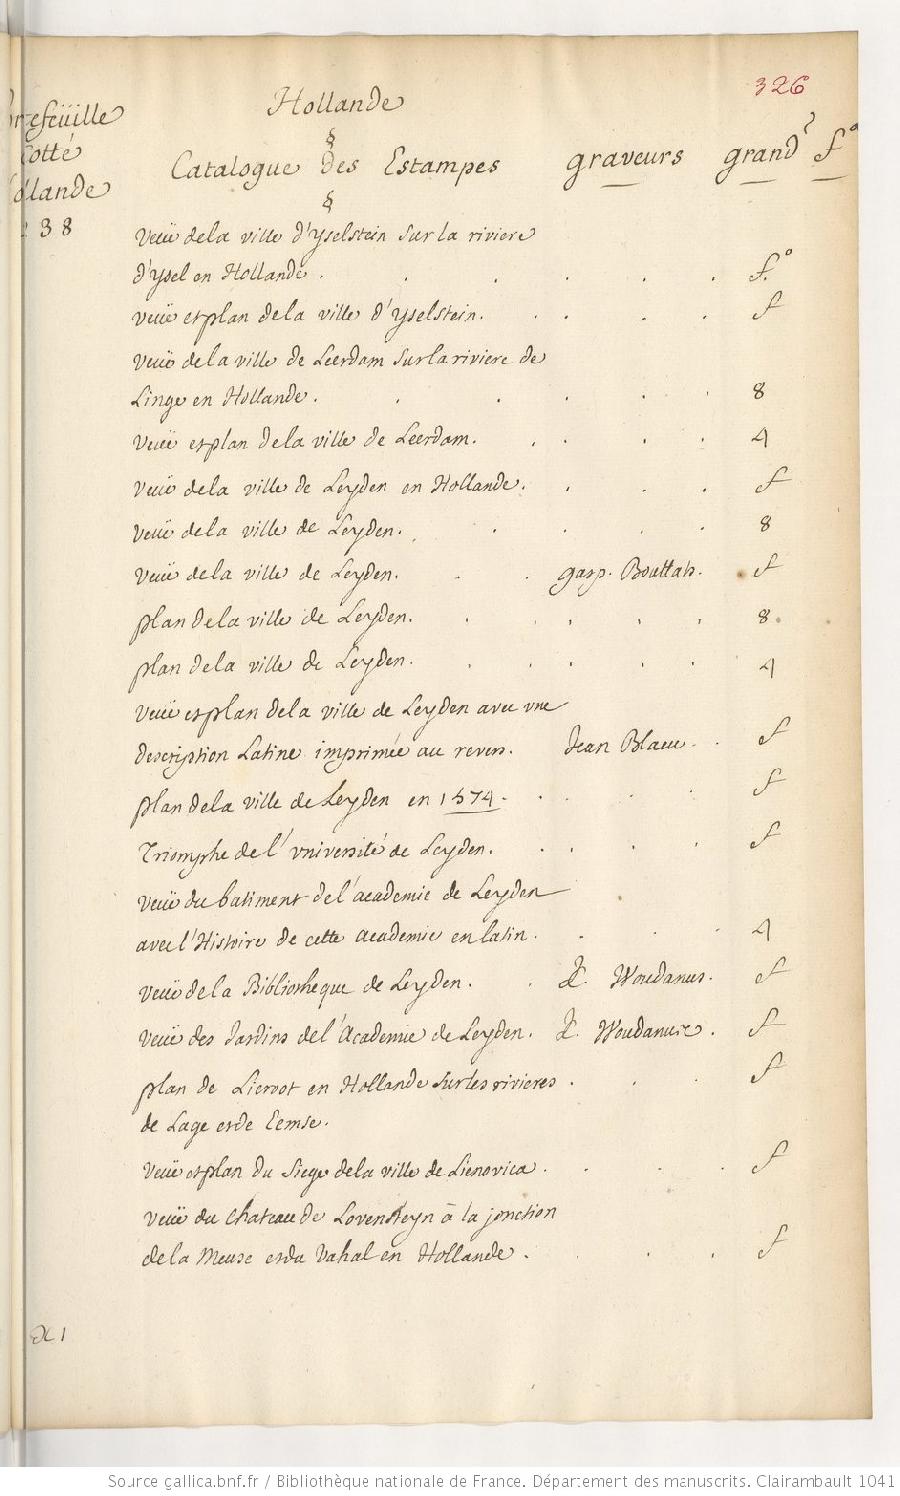 326
Hollande
§
Catalogue des Estampes graveurs grandr fo
§
refeüille
Cotté
ollande
238
Veüe de la ville d'yselstein sur la riviere
d'ysel en Hollande . . . . . . f.o
veüe et plan de la ville d'yselstein. . . . . f
veüe de la ville de Leerdam sur la riviere de
Linge en Hollande. . . . . . 8
Veüe et plan de la ville de Leerdam. . . . . 4
Veüe de la ville de Leyden en Hollande. . . . f
veüe de la ville de Leyden. . . . . . 8
Veüe de la ville de Leyden. . . gasp. Bouttats. f
plan de la ville de Leyden. . . . . . 8.
plan de la ville de Leyden. . . . . . 4
Veüe et plan de la ville de Leyden avec vne
description Latine imprimée au revers. Jean Blaeu. . f
plan de la ville de Leyden en 1574. . . . f
Triomphe de l'vniversité de Leyden. . . . . f
veüe du batiment de l'academie de Leyden
avec l'Histoire de cette academie en latin. . . . 4
veüe de la Bibliotheque de Leyden. . Woudanus. f
veüe des Jardins de l'Academie de Leyden. Woudanus. f
plan de Liervot en Hollande sur les rivieres . . . f
de Lage et de Eemse.
veüe et plan du siege de la ville de Lienovica. . . . f
veüe du chateau de Lovensteyn à la jonction
de la Meuse et du Vahal en Hollande. . . . f
Source gallica.bnf.fr / Bibliothèque nationale de France. Département des manuscrits. Clairambault 1041